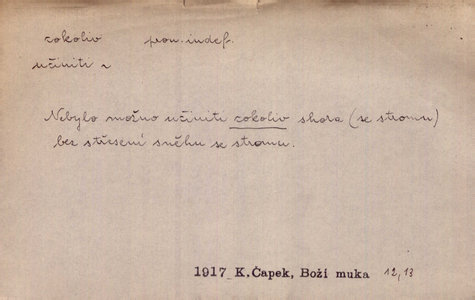 cokoliv pron. indef.
učiniti ~
Nebylo možno učiniti cokoliv shora (se stromu)
bez střesení sněhu se stromu.
1917 K.Čapek, Boží muka 12,13